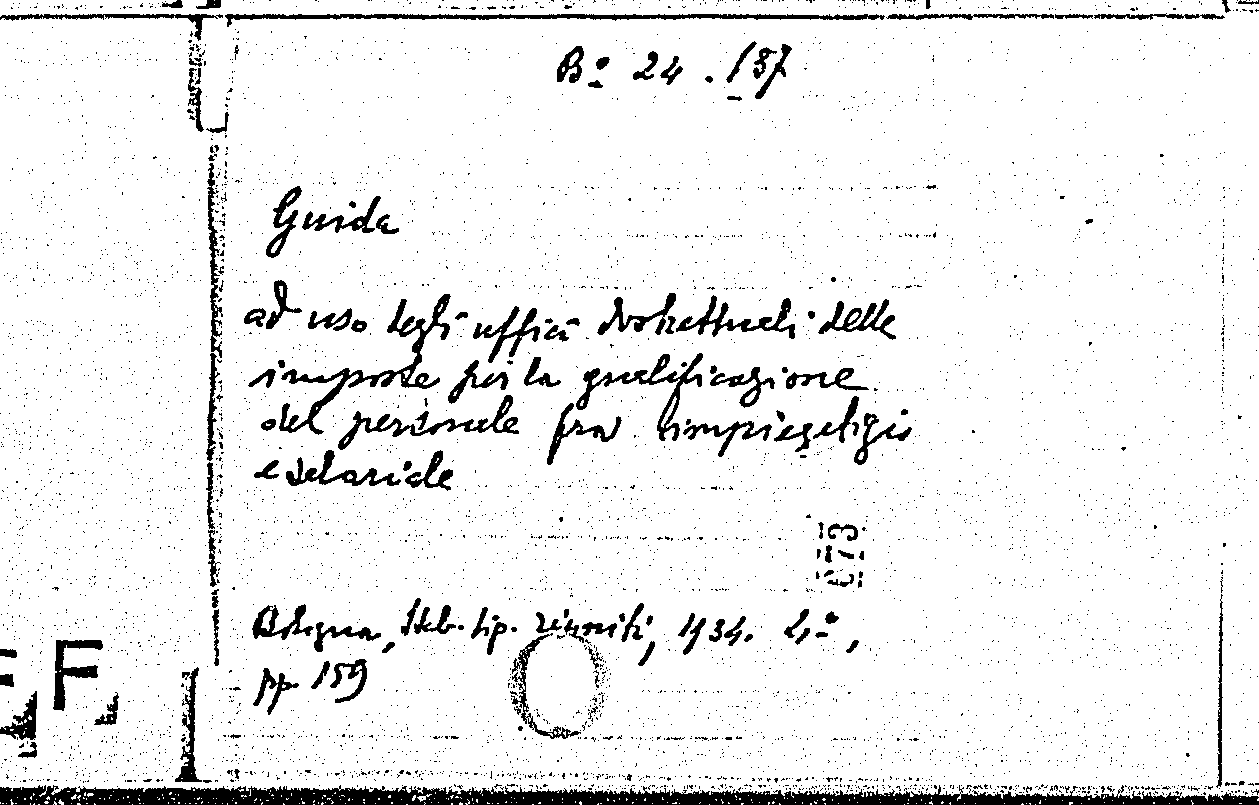 Bº 24 . 187
Guida
ad uso degli uffici distrettuali delle
imposte per la qualificazione
del personale fra impiegatizio
e salariale
673
Bologna, Stab. tip. riuniti, 1934. 4º,
pp. 159
F